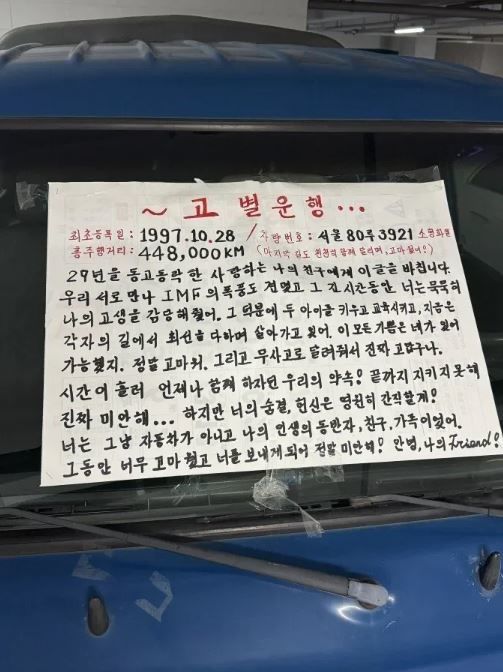 ~ 고별운행...
최초등록일 : 1997.10.28 / 차량번호 : 서울80루3921
총주행거리 : 448,000KM (마지막 길도 천천히 함께 달리며, 고마웠어!)
27년을 동고동락한 사랑하는 나의 친구에게 이글을 바칩니다.
우리 서로 만나 IMF의 폭풍도 견뎠고 그 긴 시간동안 너는 묵묵히
나의 고생을 감당해줬어. 그 덕분에 두 아이를 키우고 교육시키고, 지금은
각자의 길에서 최선을 다하며 살아가고 있어. 이 모든 기쁨은 네가 있어
가능했지. 정말 고마워. 그리고 무사고로 달려줘서 진짜 고맙구나.
시간이 흘러 언제나 함께 하자던 우리의 약속! 끝까지 지키지 못해
진짜 미안해... 하지만 너의 숨결, 헌신은 영원히 간직할게!
너는 그냥 자동차가 아니고 나의 인생의 동반자, 친구, 가족이었어.
그동안 너무 고마웠고 너를 보내게 되어 정말 미안해! 안녕, 나의 Friend!